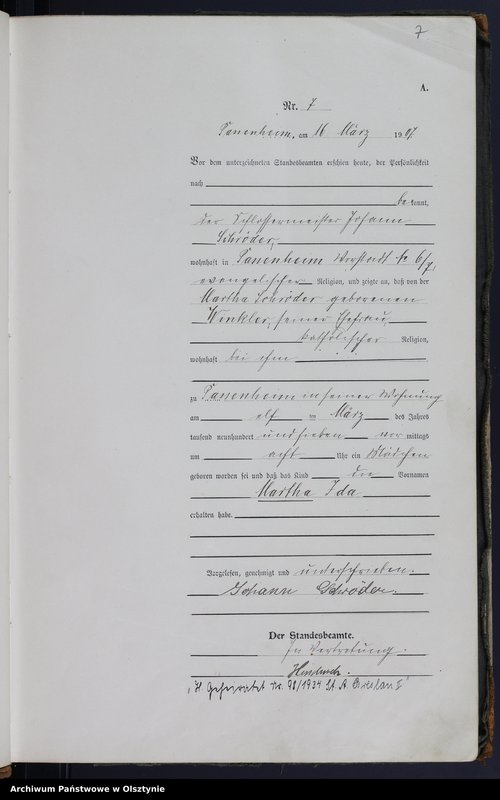 7
A.
Nr. 7
Passenheim, am 16 März 1907
Vor dem unterzeichneten Standesbeamten erschien heute, der Persönlichkeit
nach
be kannt,
der Schlossermeister Johann
Schröder,
wohnhaft in Passenheim Vorstadt 6/7,
evangelischer Religion, und zeigte an, daß von der
Martha Schröder geborenen
Winkler, seiner Ehefrau,
katholischer Religion,
wohnhaft bei ihm
zu Passenheim in seiner Wohnung
am elf ten März des Jahres
tausend neunhundert und sieben vor mittags
um acht Uhr ein Mädchen
geboren worden sei und daß das Kind die Vornamen
Martha Ida
erhalten habe.
Vorgelesen, genehmigt und unterschrieben.
Johann Schröder.
Der Standesbeamte.
In Vertretung.
Geheiratet Nr. 98/1934 St. A. Breslau
Archiwum Państwowe w Olsztynie